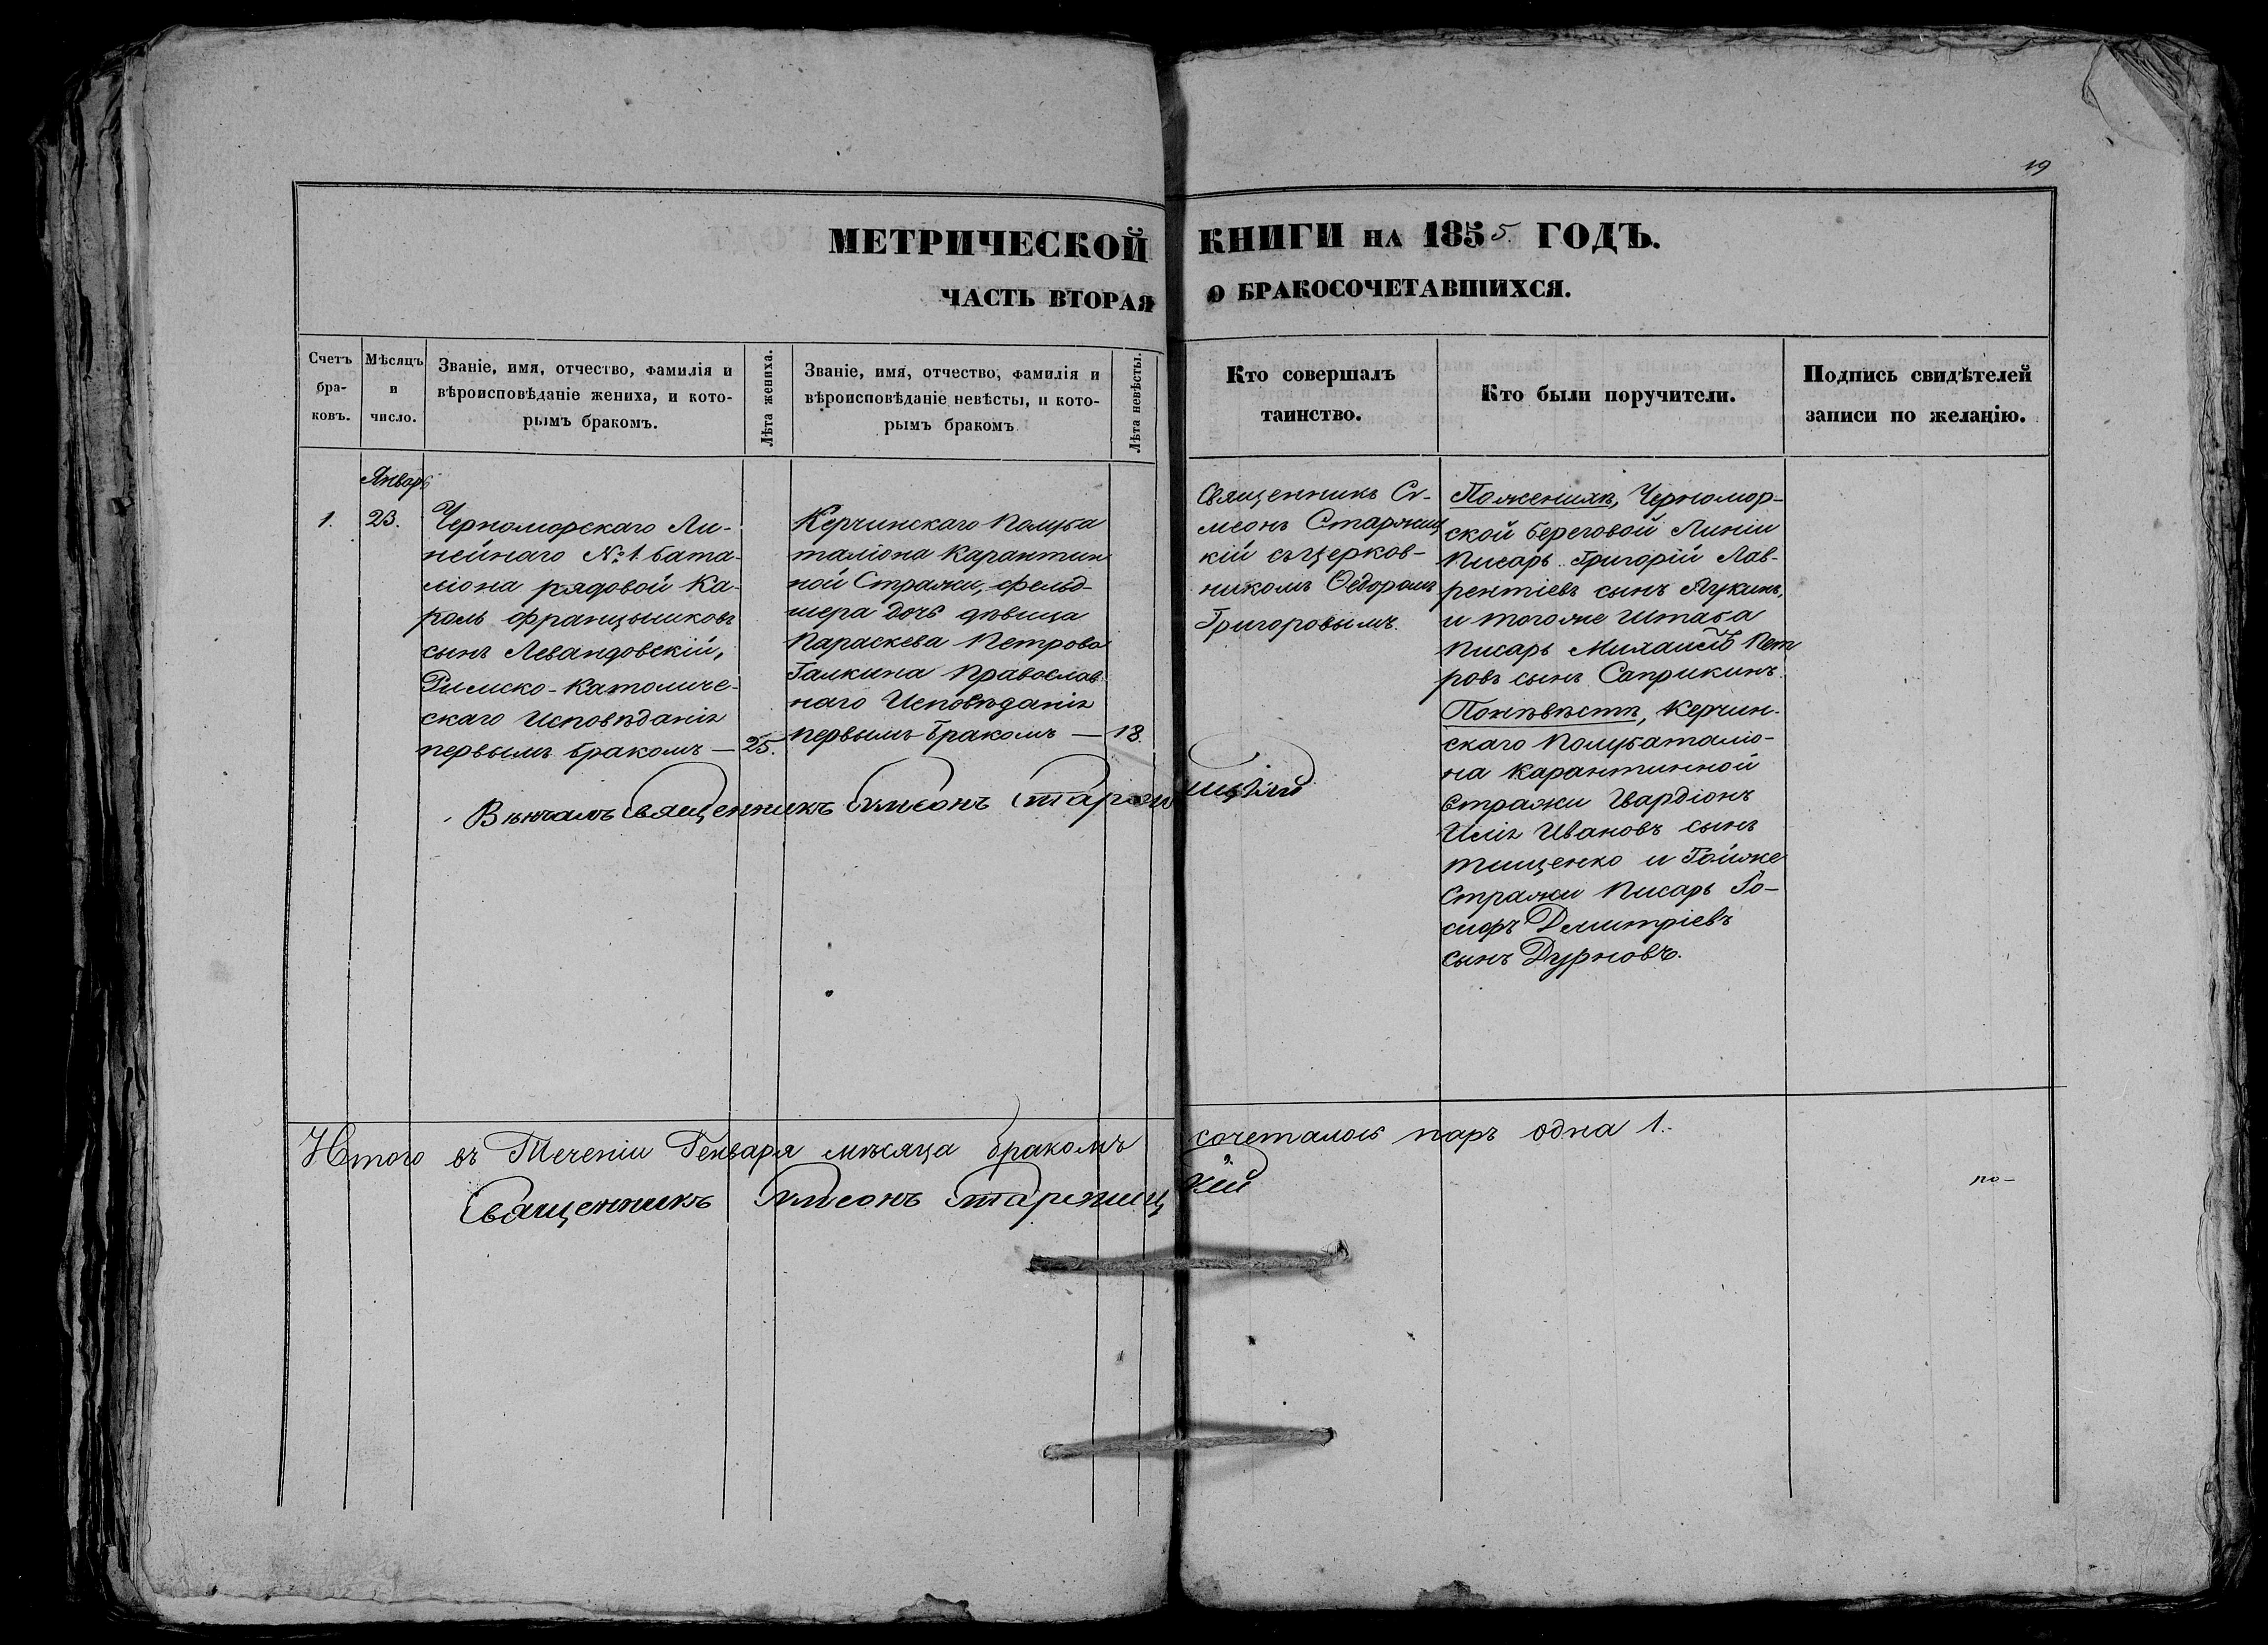 19
МЕТРИЧЕСКОЙ КНИГИ НА 1855. ГОДЪ.
ЧАСТЬ ВТОРАЯ О БРАКОСОЧЕТАВШИХСЯ.
Счетъ
бра-
ковъ.
Мѣсяцъ
и
число.
Званіе, имя, отчество, фамилія и
вѣроисповѣданіе жениха, и кото-
рымъ бракомъ.
Лѣта жениха.
Званіе, имя, отчество, фамилія и
вѣроисповѣданіе невѣсты, и кото-
рымъ бракомъ
Лѣта невѣсты.
Кто совершалъ
таинство.
Кто были поручители.
Подпись свидѣтелей
записи по желанію.
Январь
1.
23.
Черноморскаго Ли-
нейнаго № 1 бата-
ліона рядовой Ка-
роль Францышковъ
сынъ Левандовскій,
Римско-Католиче-
скаго Исповѣданія
первымъ бракомъ —
25.
Керчинскаго Полуба
таліона Карантин
ной Стражи, Фельд-
шера дочь дѣвица
Параскева Петрова
Галкина Православ
наго Исповѣданія
первымъ бракомъ —
18.
Священникъ Си-
меонъ Старжиц
кій съ церков-
никомъ Ѳедоромъ
Григоровымъ.
По женихѣ, Черномор-
ской береговой Линіи
Писарь Григорій Лав-
рентіевъ сынъ Лукинъ,
и тогоже Штаба
Писарь Михаилъ Пет
ровъ сынъ Саприкинъ.
По невѣстѣ, Керчин-
скаго Полубаталіо-
на Карантинной
Стражи Гвардіонъ
Илія Ивановъ сынъ
Тищенко и Тойже
Стражи Писарь Іо-
сифъ Дмитріевъ
сынъ Дурновъ.
Вѣнчалъ Священникъ Симеонъ Старжицкій
Итого въ Теченіи Генваря мѣсяца бракомъ сочеталось паръ одна 1.
Священникъ Симеонъ Старжицкій
по-